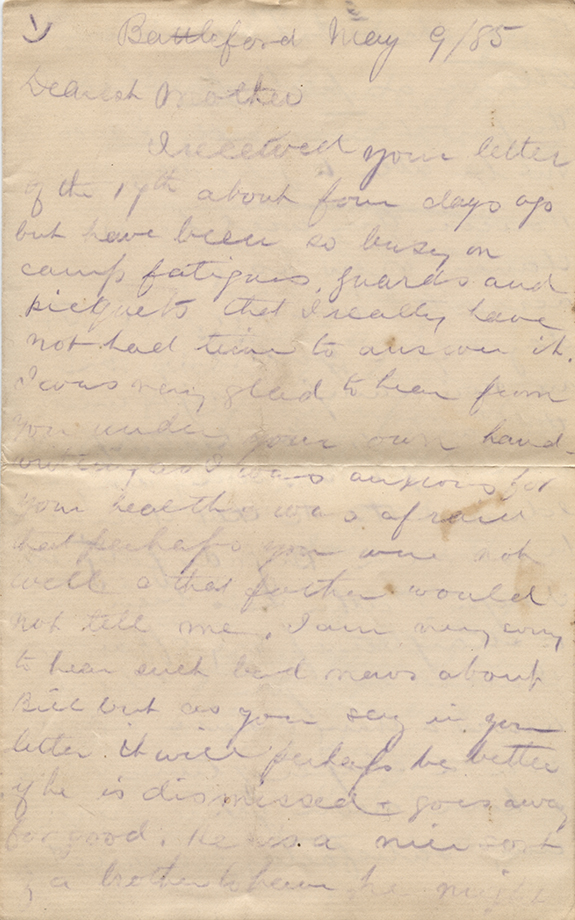 Battleford May 9/85
Dearest Mother
I received your letter
of the 19th about four days ago
but have been so busy on
camp fatigues, guards and
picquets that I really have
not had time to answer it.
I was very glad to hear from
you under your own hand-
writing as I was anxious for
your health & was afraid
that perhaps you were not
well & that father would
not tell me, I am very sorry
to hear such bad news about
Bill but as you say in your
letter it will perhaps be better
if he is dismissed & goes away
for good. He is a nice sort
of a brother to have, he might